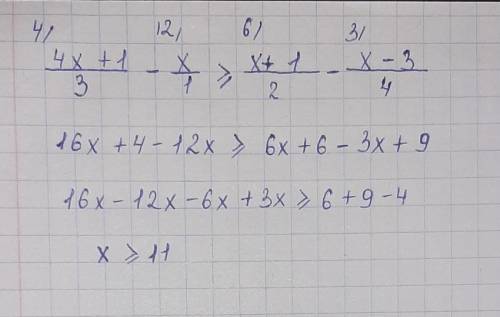 4/ 12/ 6/ 3/
(4x + 1)/3 - x/1 ⩾ (x + 1)/2 - (x - 3)/4
16x + 4 - 12x ⩾ 6x + 6 - 3x + 9
16x - 12x - 6x + 3x ⩾ 6 + 9 - 4
x ⩾ 11